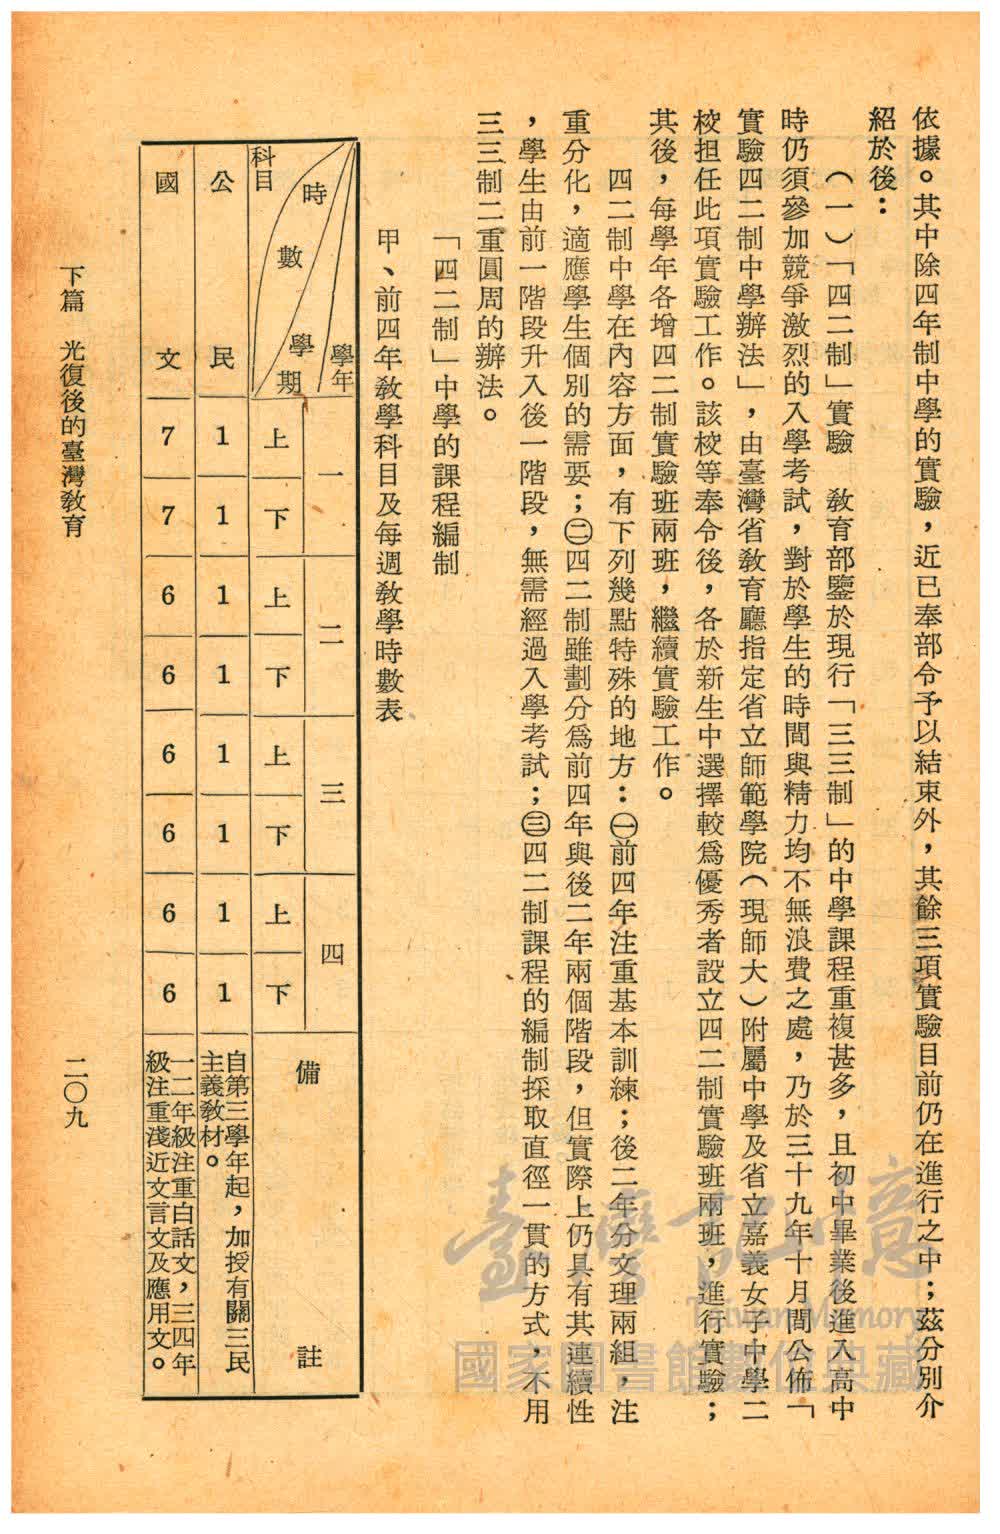 依據。其中除四年制中學的實驗，近已奉部令予以結束外，其餘三項實驗目前仍在進行之中；茲分別介
紹於後：
（一）「四二制」實驗　教育部鑒於現行「三三制」的中學課程重複甚多，且初中畢業後進入高中
時仍須參加競爭激烈的入學考試，對於學生的時間與精力均不無浪費之處，乃於三十九年十月間公佈「
實驗四二制中學辦法」，由臺灣省教育廳指定省立師範學院（現師大）附屬中學及省立嘉義女子中學二
校担任此項實驗工作。該校等奉令後，各於新生中選擇較爲優秀者設立四二制實驗班兩班，進行實驗；
其後，每學年各增四二制實驗班兩班，繼續實驗工作。
四二制中學在內容方面，有下列幾點特殊的地方：㊀前四年注重基本訓練；後二年分文理兩組，注
重分化，適應學生個別的需要；㊁四二制雖劃分爲前四年與後二年兩個階段，但實際上仍具有其連續性
，學生由前一階段升入後一階段，無需經過入學考試；㊂四二制課程的編制採取直徑一貫的方式，不用
三三制二重圓周的辦法。
「四二制」中學的課程編制
甲、前四年教學科目及每週教學時數表
學年　一　二　三　四　備　註
學期　上　下　上　下　上　下　上　下
時數
科目
公民　1　1　1　1　1　1　1　1　自第三學年起，加授有關三民
主義教材。
國文　7　7　6　6　6　6　6　6　一二年級注重白話文，三四年
級注重淺近文言文及應用文。
下篇　光復後的臺灣教育
二〇九
臺灣記憶
Taiwan Memory
國家圖書館數位典藏